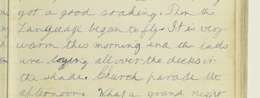 got a good soaking. Then the
language began to fly. It is very
warm this morning and the lads
are laying all over the decks in
the shade. Church parade this
afternoon. What a grand night